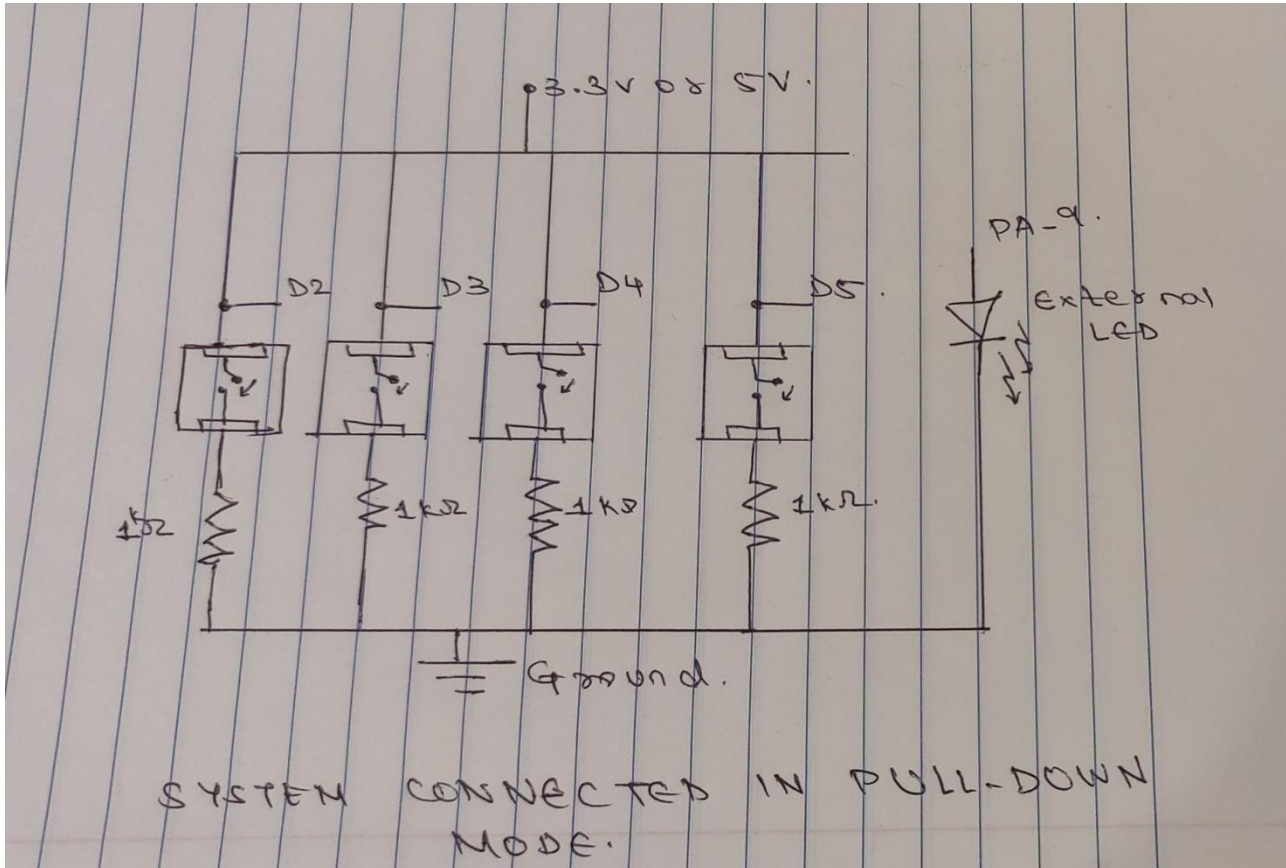 3.3V or 5V.
D2
D3
D4
D5.
PA-9.
External
LED
1kΩ
1kΩ
1kΩ
1kΩ.
Ground.
SYSTEM CONNECTED IN PULL-DOWN
MODE.